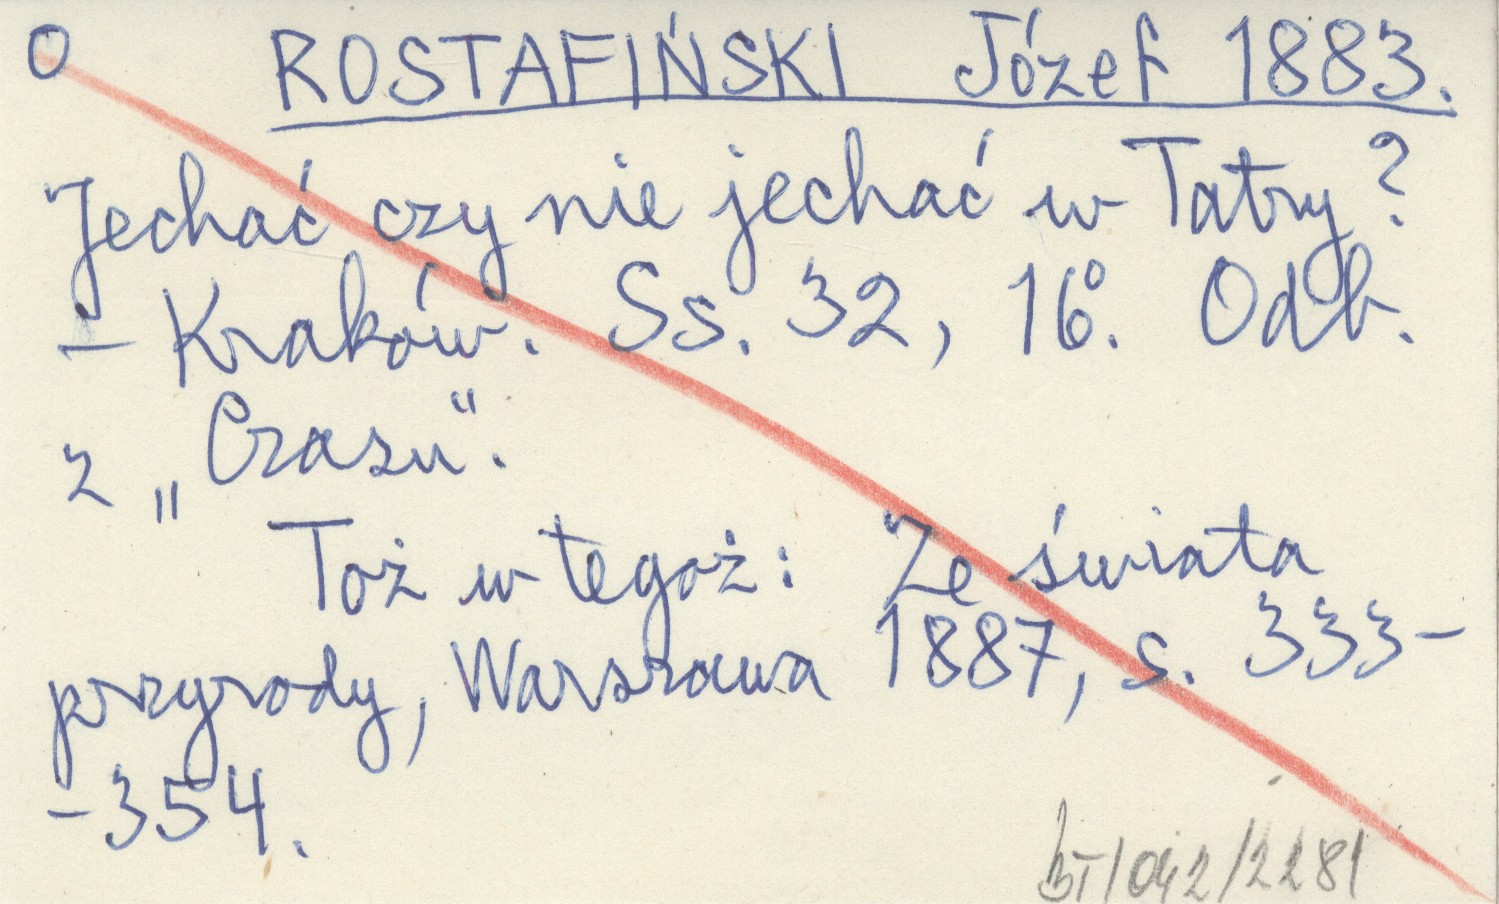 O ROSTAFIŃSKI Józef 1883.
Jechać czy nie jechać w Tatry?
– Kraków. Ss. 32, 16°. Odb.
z „Czasu".
Toż w tegoż: Ze świata
przyrody, Warszawa 1887, s. 333–
–354.
BT/042/2281